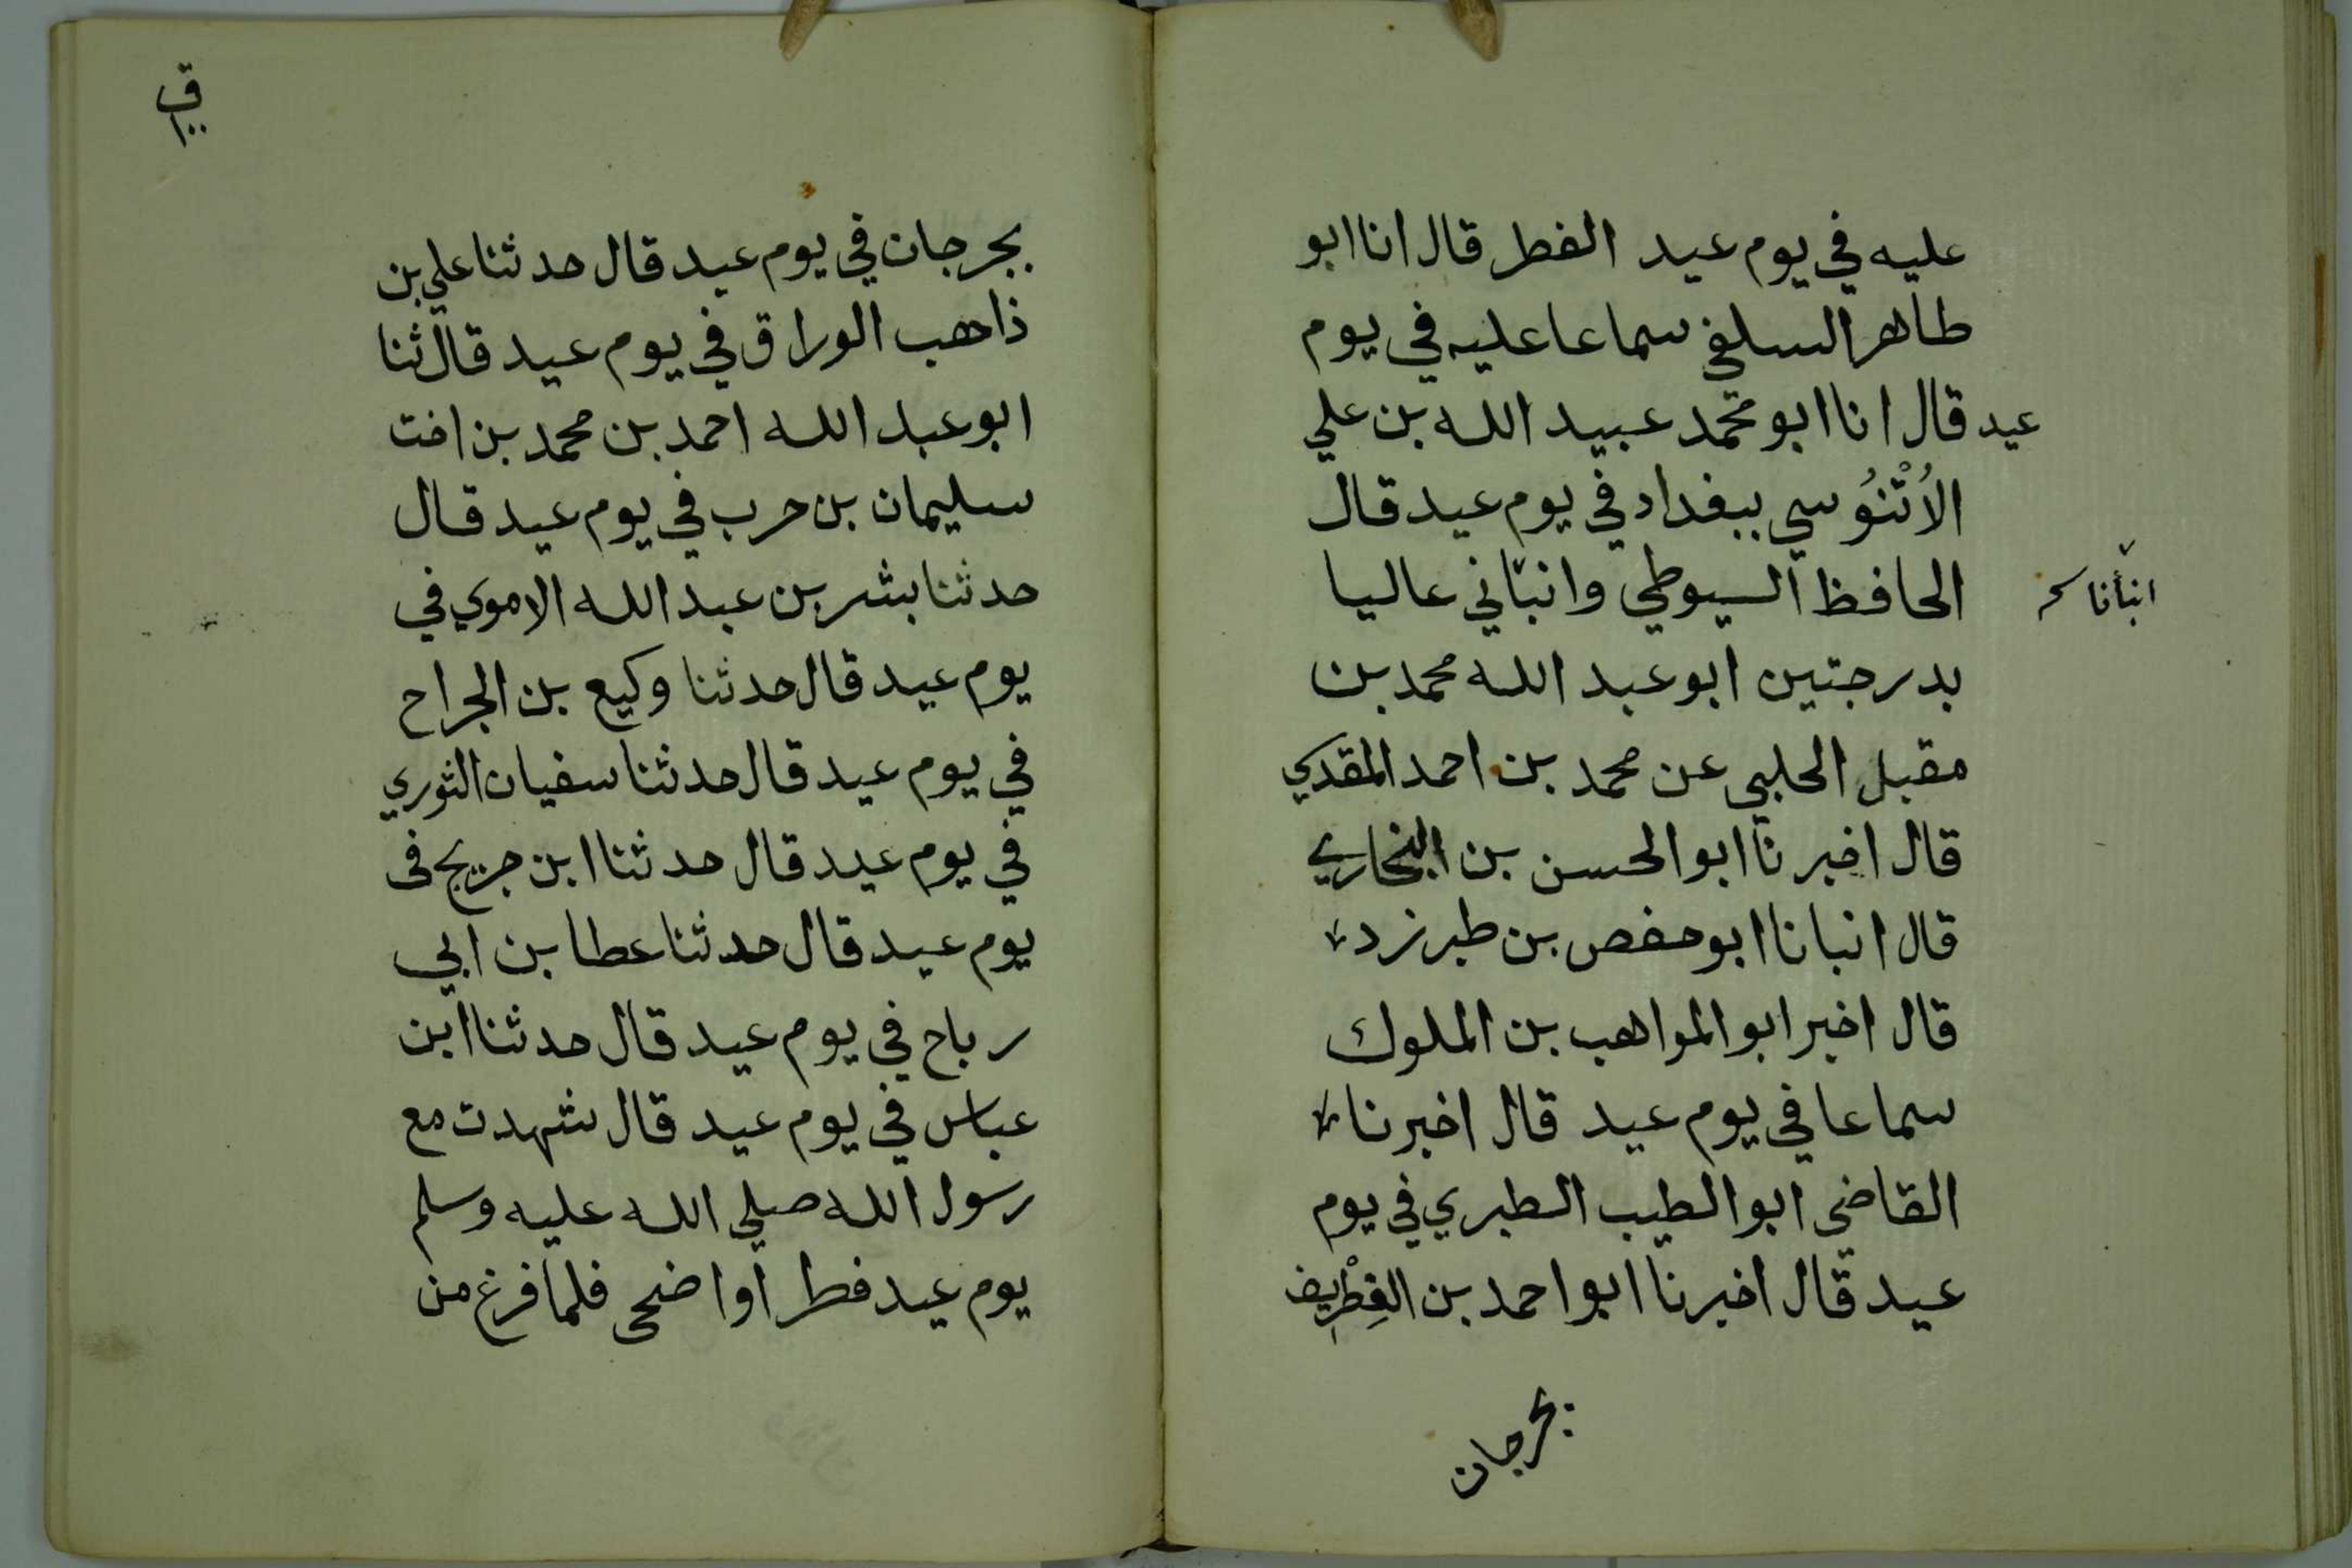 عليه في يوم عيد الفطر قال انا ابو
طاهر السلفي سماعا عليه في يوم
عيد قال انا ابو محمد عبيد الله بن علي
الاُبْنُوُسي ببغداد في يوم عيد قال
انبأنا
الحافظ السيوطي وانبّاني عاليا
بدرجتين ابو عبد الله محمد بن
مقبل الحلبي عن محمد بن احمد المقدسي
قال اخبرنا ابو الحسن بن البخاري
قال انبانا ابو حفص بن طبرزد
قال اخبر ابو المواهب بن الملوك
سماعا في يوم عيد قال اخبرنا
القاضي ابو الطيب الطبري في يوم
عيد قال اخبرنا ابو احمد بن الغِطْرِيف
بجرجان
بجرجان في يوم عيد قال حدثنا علي بن
ذاهب الوراق في يوم عيد قال ثنا
ابو عبد الله احمد بن محمد بن اخت
سليمان بن حرب في يوم عيد قال
حدثنا بشر بن عبد الله الاموي في
يوم عيد قال حدثنا وكيع بن الجراح
في يوم عيد قال حدثنا سفيان الثوري
في يوم عيد قال حدثنا ابن جريج فى
يوم عيد قال حدثنا عطا بن ابي
رباح في يوم عيد قال حدثنا ابن
عباس في يوم عيد قال شهدت مع
رسول الله صلي الله عليه وسلم
يوم عيد فطر او اضحى فلما فرغ من